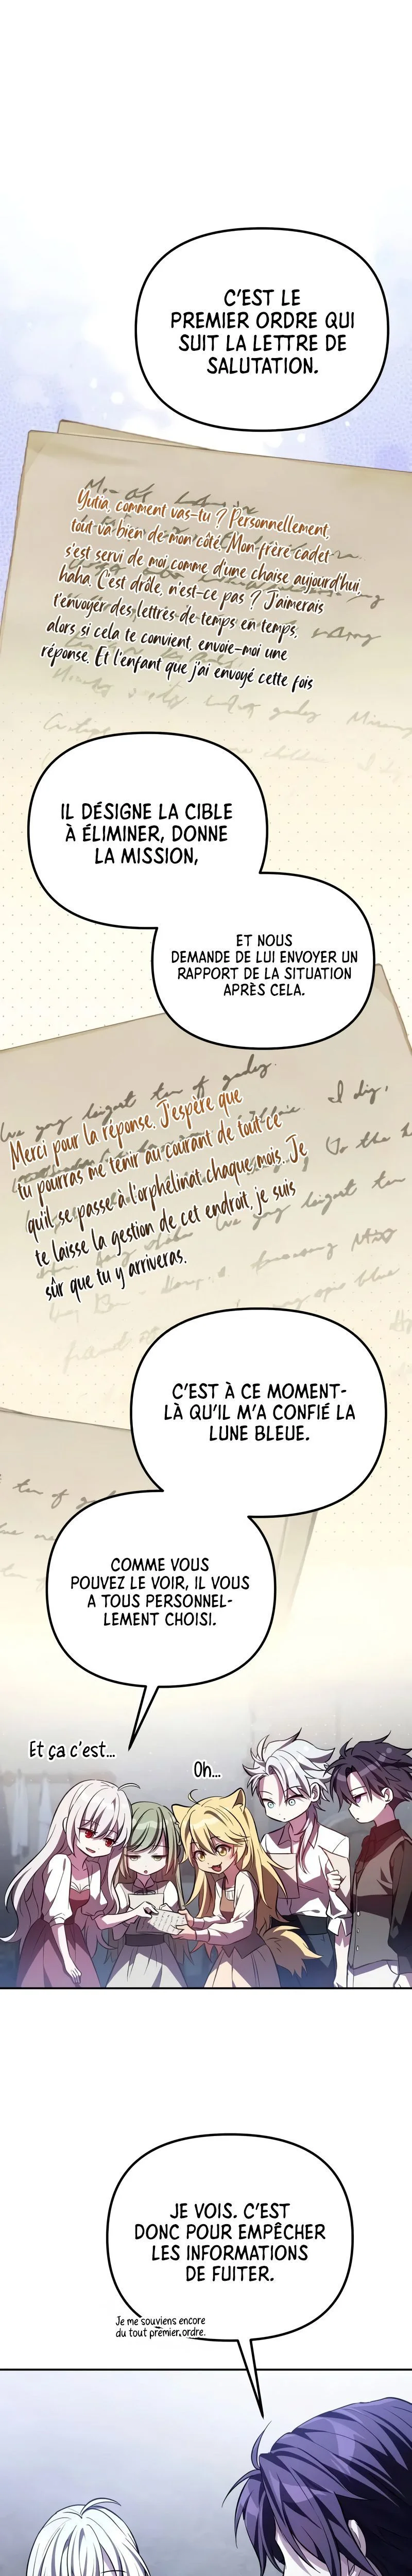 C'EST LE
PREMIER ORDRE QUI
SUIT LA LETTRE DE
SALUTATION.
Yutia, comment vas-tu ? Personnellement,
tout va bien de mon côté. Mon frère cadet
s'est servi de moi comme d'une chaise aujourd'hui,
haha. C'est drôle, n'est-ce pas ? J'aimerais
t'envoyer des lettres de temps en temps,
alors si cela te convient, envoie-moi une
réponse. Et l'enfant que j'ai envoyé cette fois
IL DÉSIGNE LA CIBLE
À ÉLIMINER, DONNE
LA MISSION,
ET NOUS
DEMANDE DE LUI ENVOYER UN
RAPPORT DE LA SITUATION
APRÈS CELA.
Merci pour la réponse. J'espère que
tu pourras me tenir au courant de tout ce
qu'il se passe à l'orphelinat chaque mois. Je
te laisse la gestion de cet endroit, je suis
sûr que tu y arriveras.
C'EST À CE MOMENT-
LÀ QU'IL M'A CONFIÉ LA
LUNE BLEUE.
COMME VOUS
POUVEZ LE VOIR, IL VOUS
A TOUS PERSONNEL-
LEMENT CHOISI.
Et ça c'est...
Oh...
JE VOIS. C'EST
DONC POUR EMPÊCHER
LES INFORMATIONS
DE FUITER.
Je me souviens encore
du tout premier ordre.